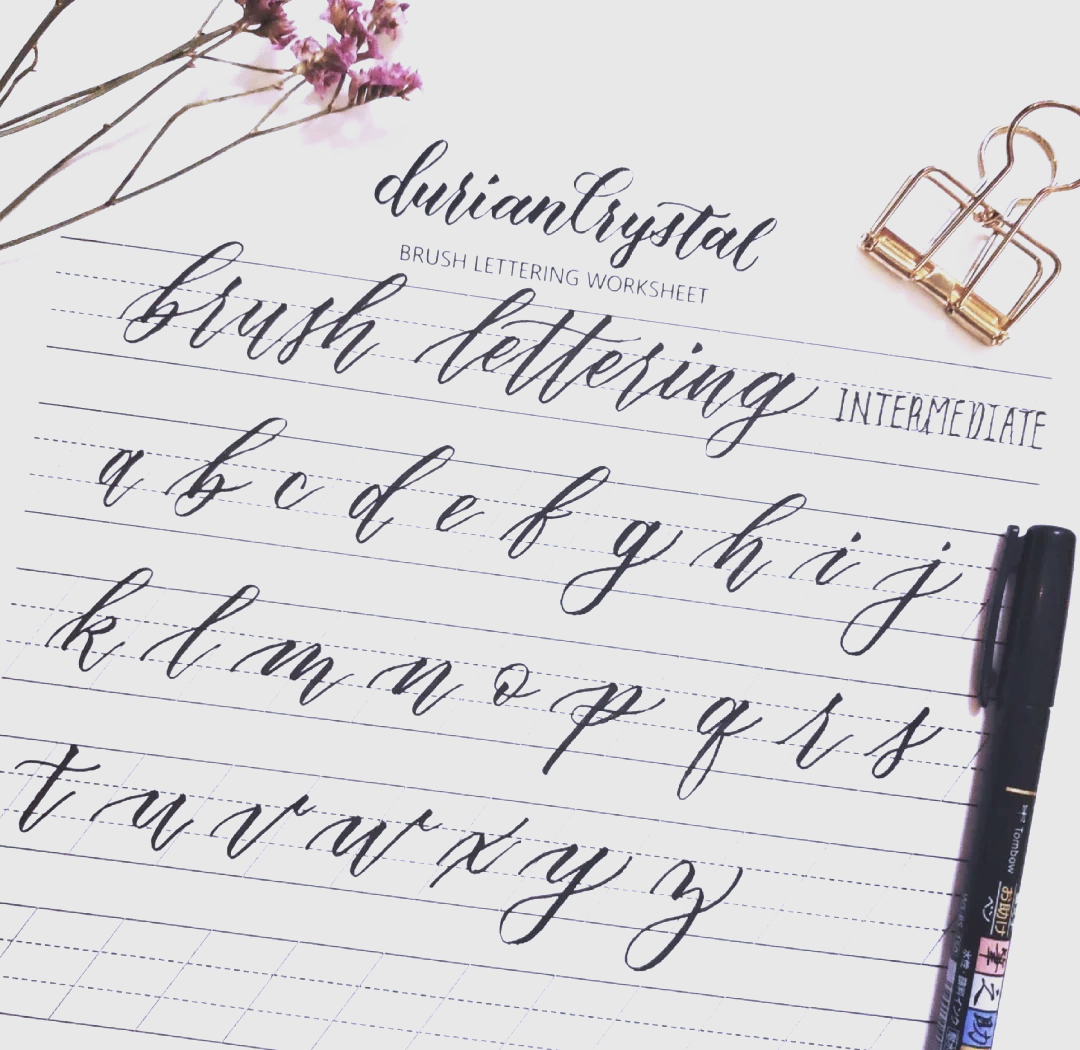 durianCrystal
BRUSH LETTERING WORKSHEET
brush lettering INTERMEDIATE
a b c d e f g h i j
k l m n o p q r s
t u v w x y z
Tombow
お助け
ペン
筆之助